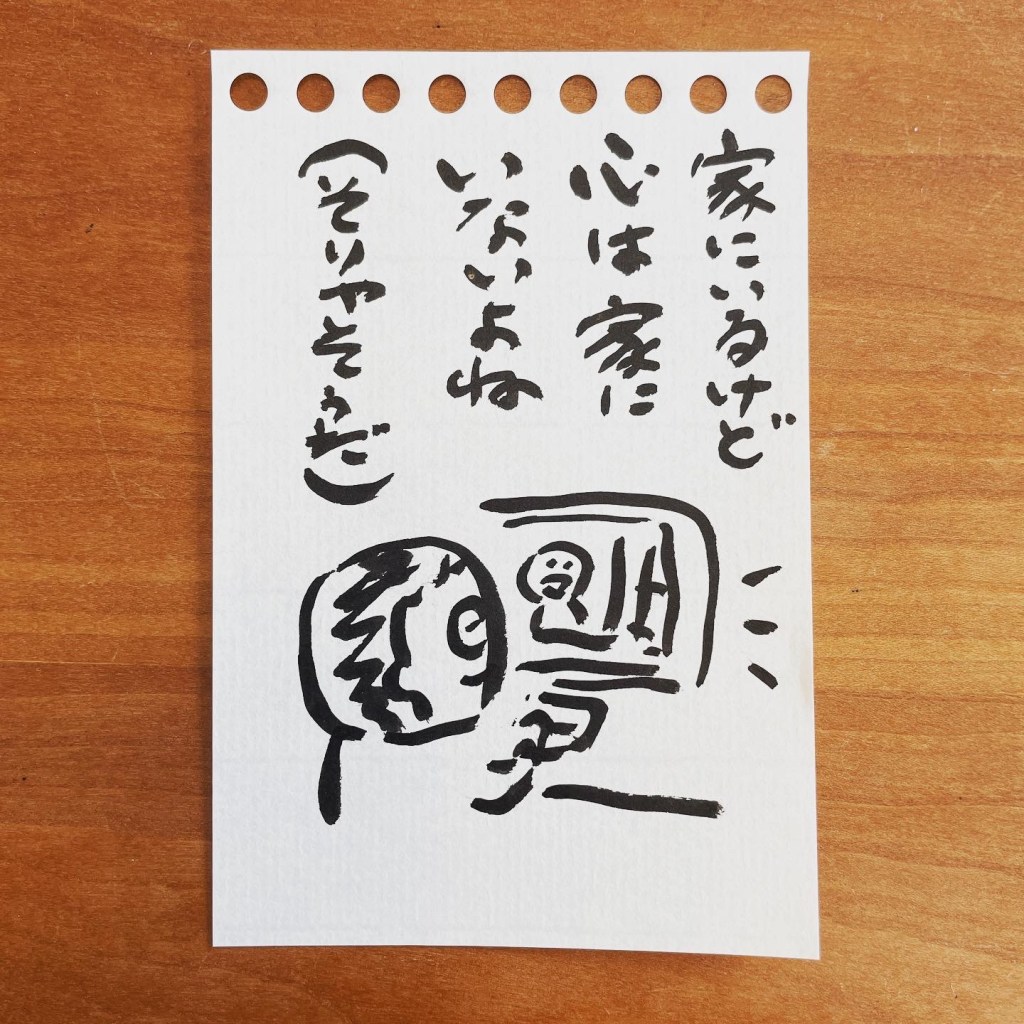 家にいるけど
心は家に
いないよね
(そりゃそうだ)